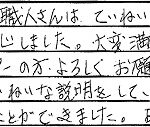 職人さんは、ていねい
じしました。大変満
の方、よろしくお願
ねいな説明をして、
とができました。